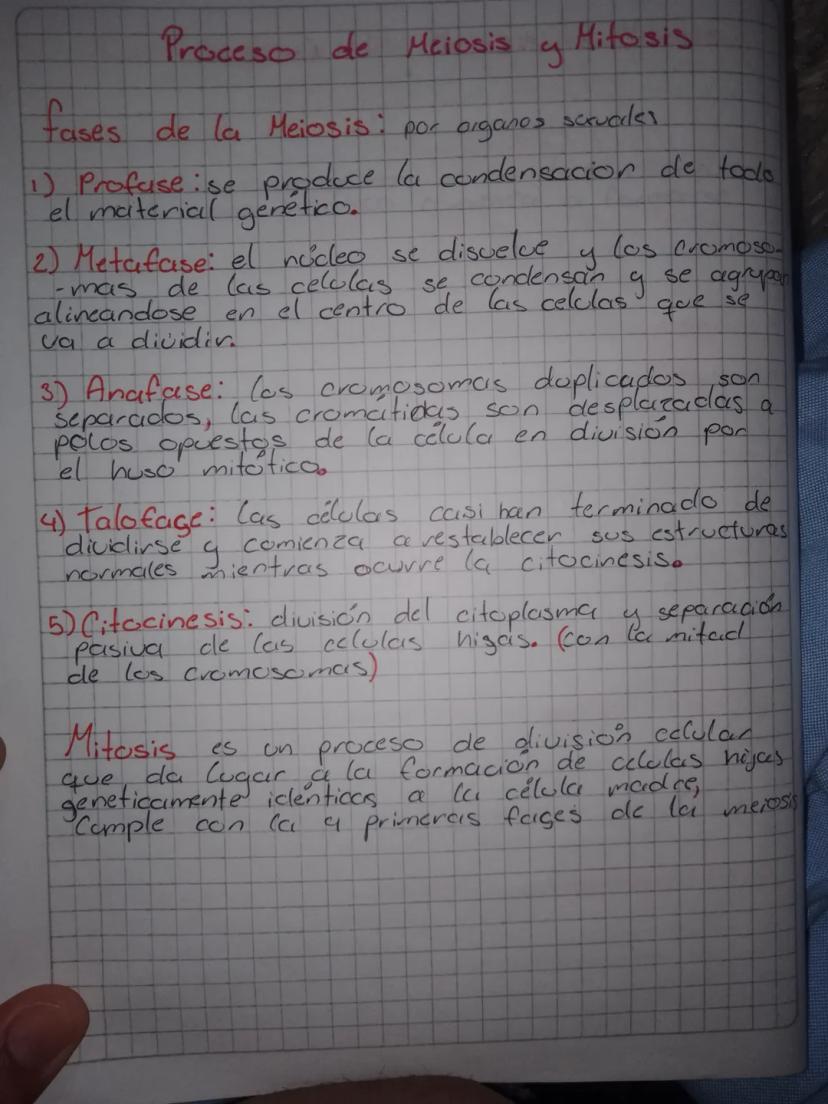 Proceso de Meiosis y Mitosis
fases de la Meiosis: por organos sexuales
1) Profase: se produce la condensacion de todo
el material genético.
2) Metafase: el núcleo se disuelve y los cromoso-
-mas de las celulas se condensan y se agrupan
alineandose en el centro de las celclas que se
va a dividir.
3) Anafase: los cromosomas duplicados son
separados, las cromátidas son desplazadas a
polos opuestos de la célula en división por
el huso mitótico.
4) Talofage: las células casi han terminado de
dividirse y comienza a restablecer sus estructuras
normales mientras ocurre la citocinesis.
5) Citocinesis: división del citoplasma y separación
pasiva de las celulas higas. (con la mitad
de los cromosomas)
Mitosis es un proceso de división celular
que da lugar a la formación de celulas hijas
geneticamente idénticas a la célula madre,
Cumple con la 4 primeras fages de la meiosis